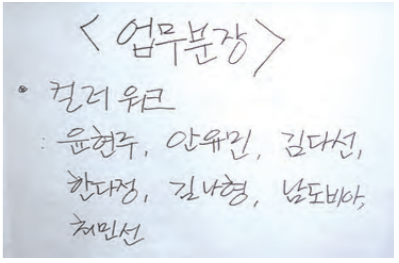 <업무분장>
• 컬러워크
: 윤현주, 안유민, 김다선,
한다정, 길나형, 남도비아,
허민선